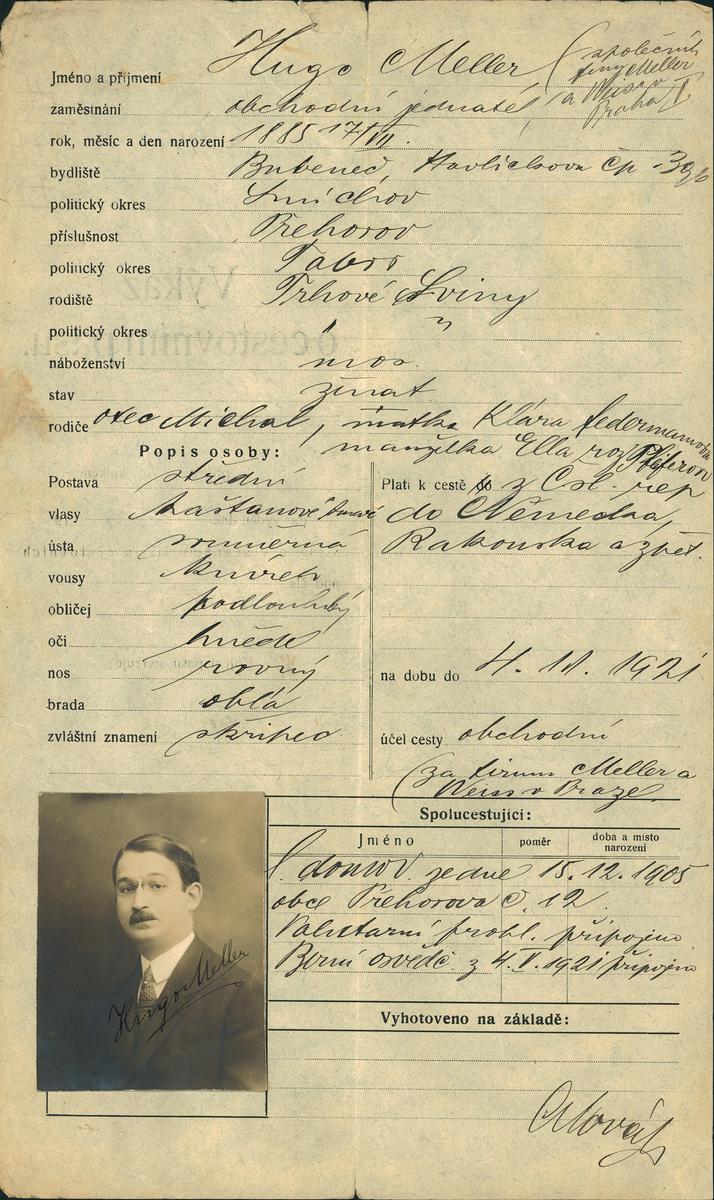 Jméno a příjmení Hugo Meller (společník
firmy Meller
a Weiss v
Praha I.
zaměstnání obchodní jednatel,
rok, měsíc a den narození 1885 17/VII.
bydliště Bubeneč, Havlíčkova čp
politický okres Smíchov
příslušnost Přehořov
politický okres Tabor
rodiště Trhové Sviny
politický okres "
náboženství mos.
stav ženat
rodiče otec Michal, matka Klára Federmannova
manželka Ella roz.
Popis osoby:
Postava střední
vlasy kaštanově tmavé
ústa souměrná
vousy knírek
obličej podlouhlý
oči hnědé
nos rovný
brada oblá
zvláštní znamení skřipec
Platí k cestě do z Čsl. rep
do Německa,
Rakouska a zpět.
na dobu do 4. 1921
účel cesty obchodní
(za firmu Meller a
Weiss v Praze)
Spolucestující:
Jméno poměr doba a místo
narození
domov. ze dne 15.12.1905
obce Přehořova č. 12
Valutární prohl. připojeno
Berní osvědč. z 4.V.1921 připojeno
Hugo Meller
Vyhotoveno na základě: